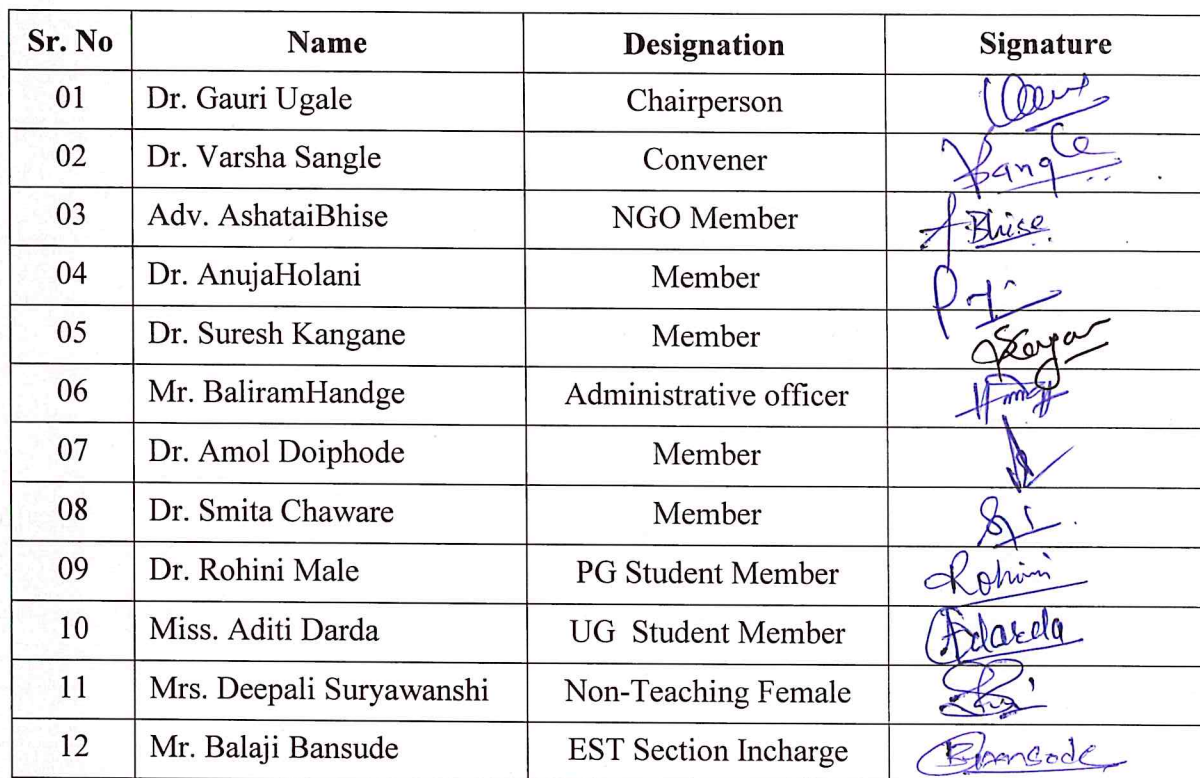 Sr. No Name Designation Signature
01 Dr. Gauri Ugale Chairperson
02 Dr. Varsha Sangle Convener
03 Adv. AshataiBhise NGO Member Bhise
04 Dr. AnujaHolani Member
05 Dr. Suresh Kangane Member
06 Mr. BaliramHandge Administrative officer
07 Dr. Amol Doiphode Member
08 Dr. Smita Chaware Member
09 Dr. Rohini Male PG Student Member Rohini
10 Miss. Aditi Darda UG Student Member
11 Mrs. Deepali Suryawanshi Non-Teaching Female
12 Mr. Balaji Bansude EST Section Incharge